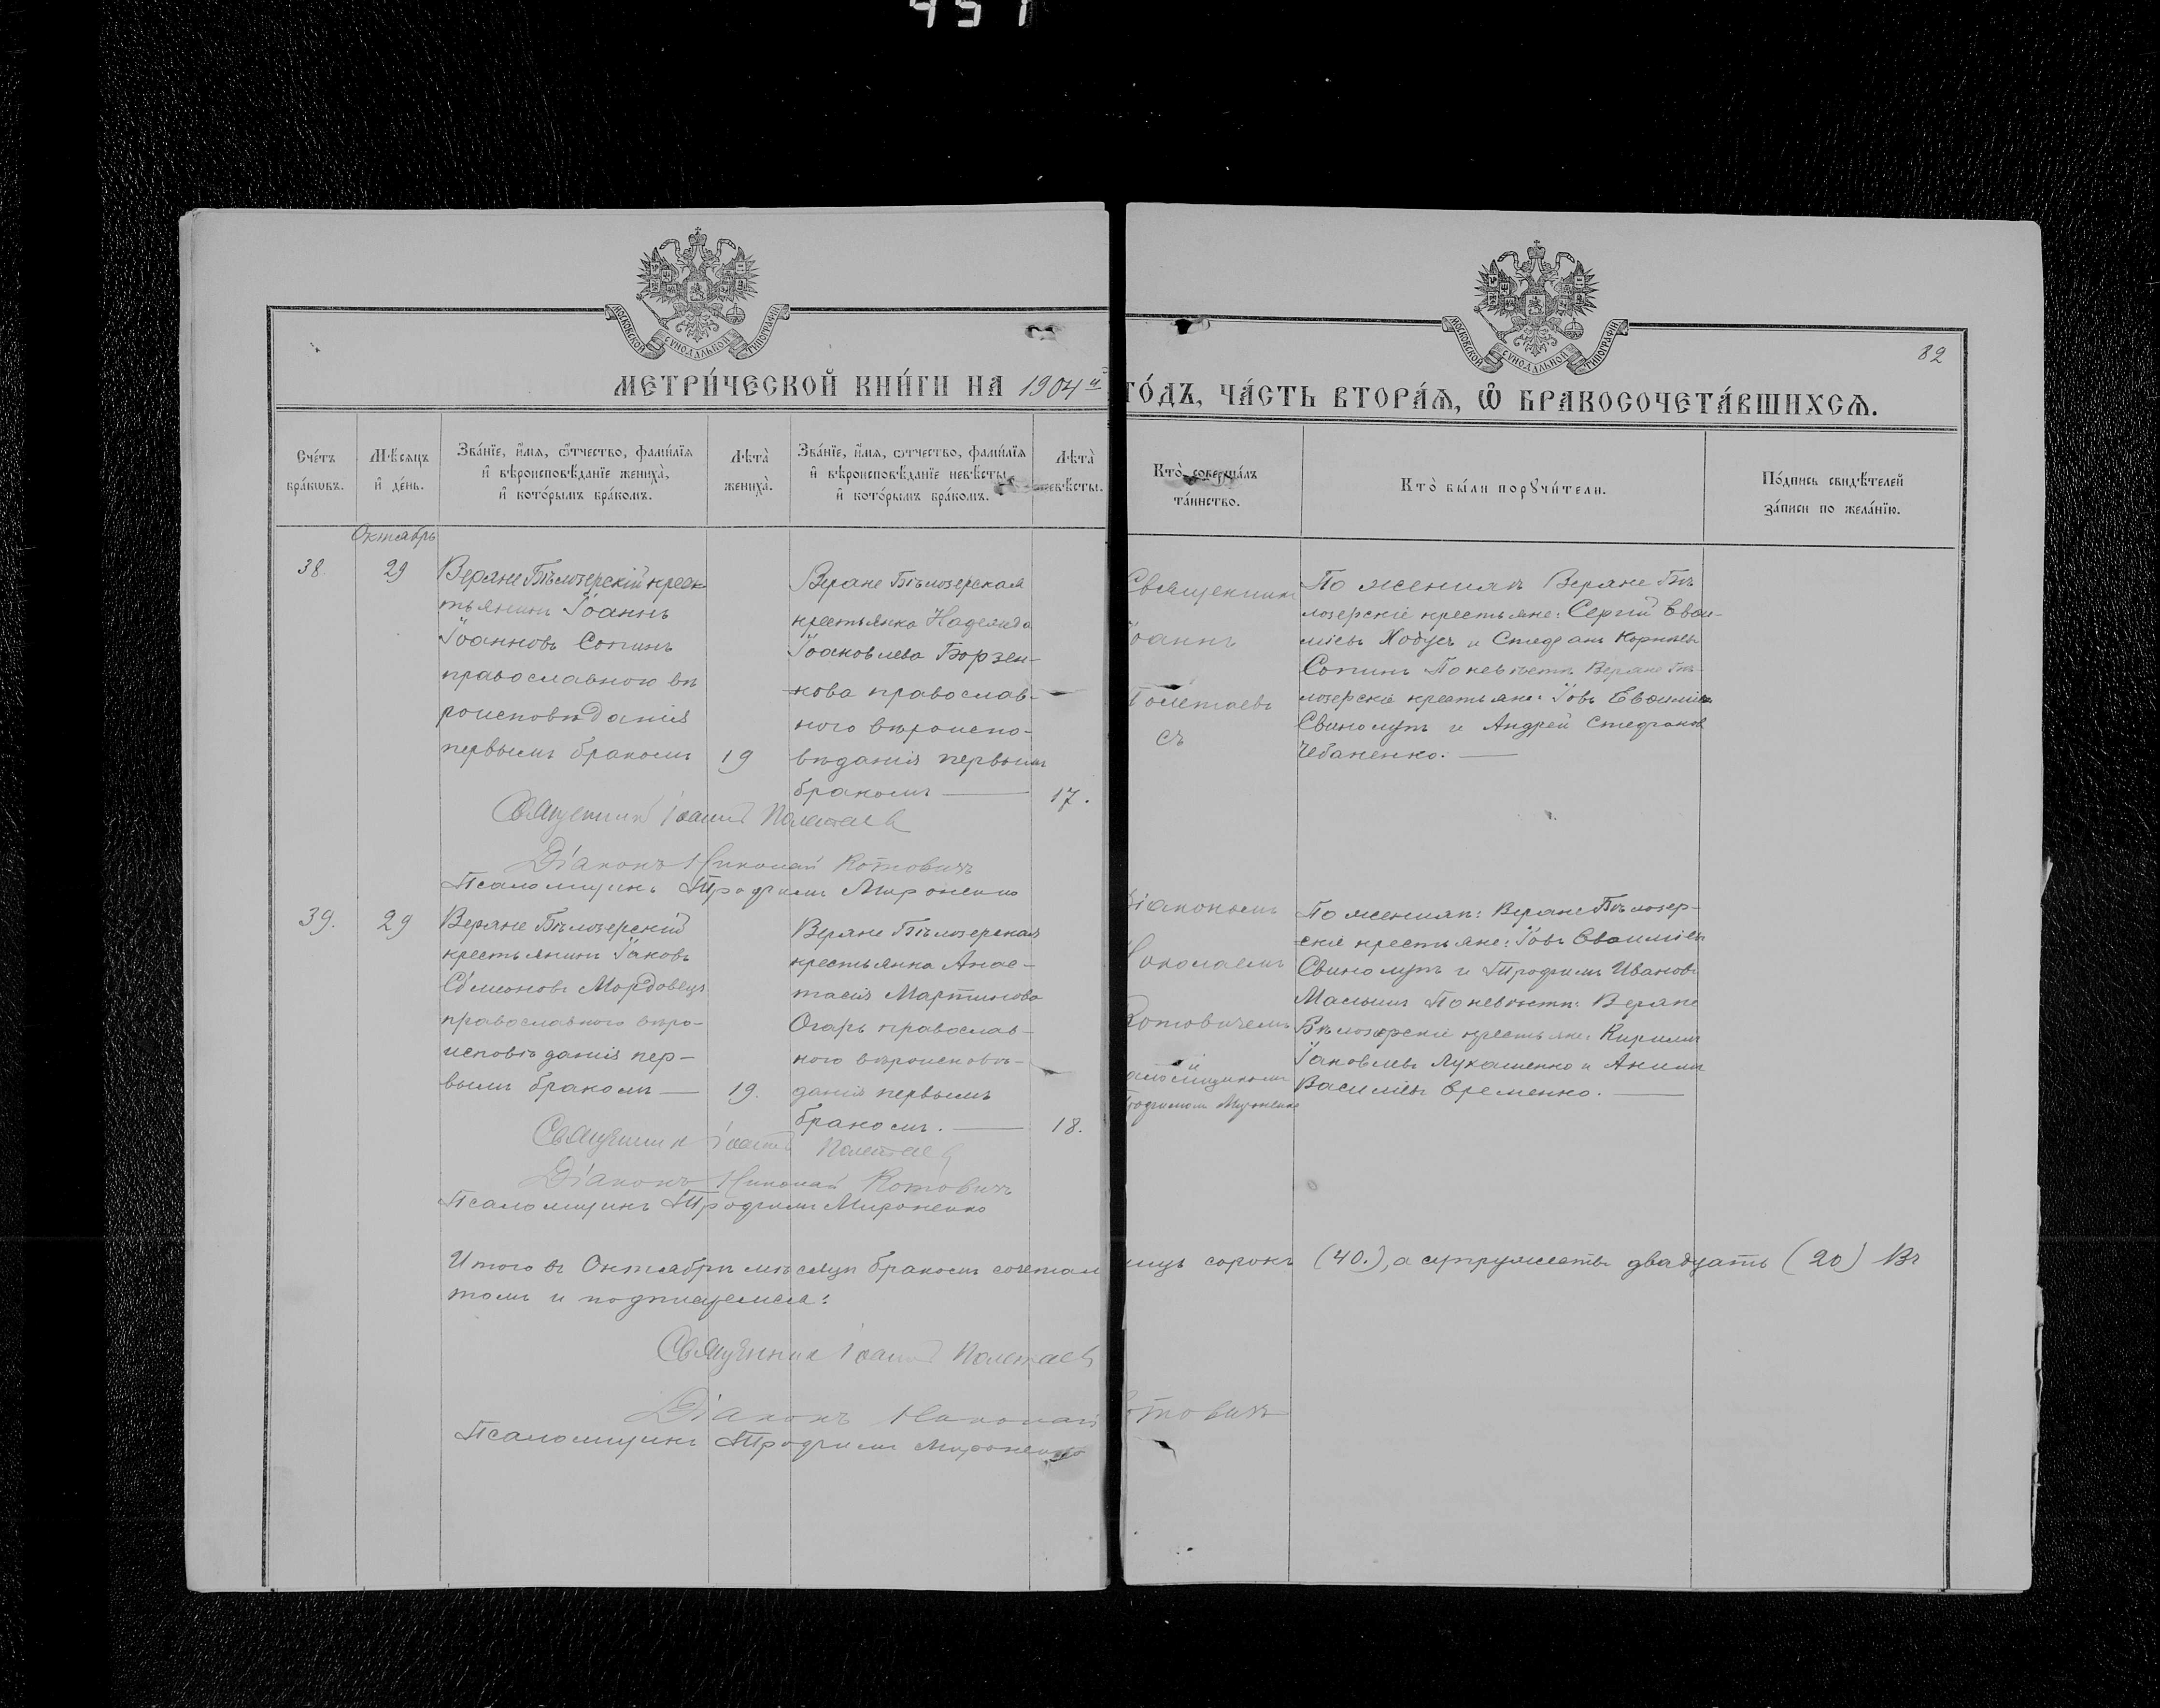 451
МОСКОВСКОЙ СѴНОДАЛЬНОЙ ТИПОГРАФІИ
МОСКОВСКОЙ СѴНОДАЛЬНОЙ ТИПОГРАФІИ
82
МЕТРИ́ЧЕСКОЙ КНИ́ГИ НА 1904й
ГО́ДЪ, ЧА́СТЬ ВТОРА́Ѧ, Ѽ БРАКОСОЧЕТА́ВШИХСѦ.
Сче́тъ бра́кѡвъ.
Мѣ́сяцъ и҆ де́нь.
Зва́нїе, и҆́мя, ѻ҆́тчество, фами́лїя
и҆ вѣроисповѣ́данїе жениха̀,
и҆ кото́рымъ бра́комъ.
Лѣта̀ жениха̀.
Зва́нїе, и҆́мя, ѻ҆́тчество, фами́лїя
и҆ вѣроисповѣ́данїе невѣ́сты,
и҆ кото́рымъ бра́комъ.
Лѣта̀ невѣ́сты.
Кто̀ соверша́лъ
та́инство.
Кто̀ бы́ли порꙋчи́тели.
По́дпись свидѣ́телей
за́писи по жела́нїю.
Октябрь
38. 29
Верхне Бѣлозерскій крес
тьянинъ Іоаннъ
Іоанновъ Сопинъ
православного вѣ
роисповѣданія
первымъ бракомъ 19
Верхне Бѣлозерская
крестьянка Надежда
Іаковлева Борзен-
кова православ-
ного вѣроиспо-
вѣданія первымъ
бракомъ — 17.
Священникъ
Іоаннъ
Полетаевъ
съ
По женихѣ Верхне Бѣ
лозерскіе крестьяне: Сергій Евѳи-
міевъ Ходусъ и Стефанъ Корніевъ
Сопинъ По невѣстѣ: Верхне Бѣ-
лозерскіе крестьяне: Іовъ Евѳиміевъ
Свинолупъ и Андрей Стефановъ
Чебаненко. —
Священникъ Іоаннъ Полетаевъ
Діаконъ Николай Котовичъ
Псаломщикъ Трофимъ Мироненко
39. 29
Верхне Бѣлозерскій
крестьянинъ Іаковъ
Сѵмеоновъ Мордовецъ
православного вѣро-
исповѣданія пер-
вымъ бракомъ — 19.
Верхне Бѣлозерская
крестьянка Анас-
тасія Мартинова
Огарь православ-
ного вѣроисповѣ-
данія первымъ
бракомъ. — 18.
Діакономъ
Николаемъ
Котовичемъ
и
аломщикомъ
Трофимомъ Мироненко
По женихѣ: Верхне Бѣлозер-
скіе крестьяне: Іовъ Евѳиміевъ
Свинолупъ и Трофимъ Ивановъ
Малышъ По невѣстѣ: Верхне
Бѣлозерскіе крестьяне: Кириллъ
Іаковлевъ Лукашенко и Акимъ
Василіевъ Еременко. —
Священникъ Іоаннъ Полетаевъ
Діаконъ Николай Котовичъ
Псаломщикъ Трофимъ Мироненко
Итого въ Октябрѣ мѣсяцѣ бракомъ сочетал
ицъ сорокъ (40.), а супружествъ двадцать (20) Въ
томъ и подписуемся:
Священникъ Іоаннъ Полетаевъ
Діаконъ Николай Котовичъ
Псаломщикъ Трофимъ Мироненко